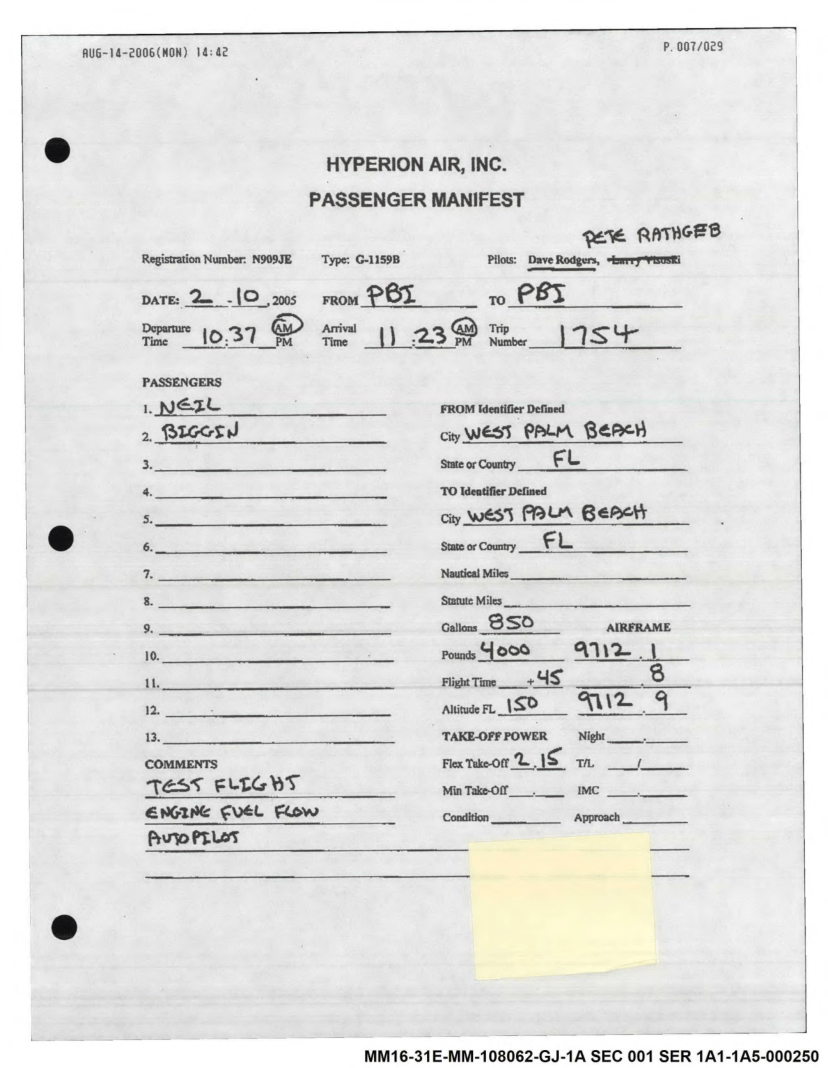 AUG-14-2006(MON) 14:42 P.007/029
HYPERION AIR, INC.
PASSENGER MANIFEST
PETE RATHGEB
Registration Number: N909JE Type: G-1159B Pilots: Dave Rodgers, Larry Visoski
DATE: 2 - 10, 2005 FROM PBI TO PBI
Departure Time 10:37 AM PM Arrival Time 11:23 AM PM Trip Number 1754
PASSENGERS
1. NEIL
2. BIGGIN
3.
4.
5.
6.
7.
8.
9.
10.
11.
12.
13.
COMMENTS
TEST FLIGHT
ENGINE FUEL FLOW
AUTOPILOT
FROM Identifier Defined
City WEST PALM BEACH
State or Country FL
TO Identifier Defined
City WEST PALM BEACH
State or Country FL
Nautical Miles
Statute Miles
Gallons 850 AIRFRAME
Pounds 4000 9712.1
Flight Time +45 .8
Altitude FL 150 9712.9
TAKE-OFF POWER Night .
Flex Take-Off 2.15 T/L /
Min Take-Off . IMC .
Condition Approach
MM16-31E-MM-108062-GJ-1A SEC 001 SER 1A1-1A5-000250